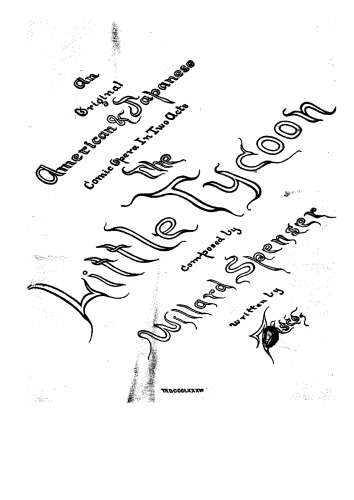 An
Original
American & Japanese
Comic Opera In Two Acts
The
Little Tycoon
Composed by
Willard Spenser
Written by
MDCCCLXXXV